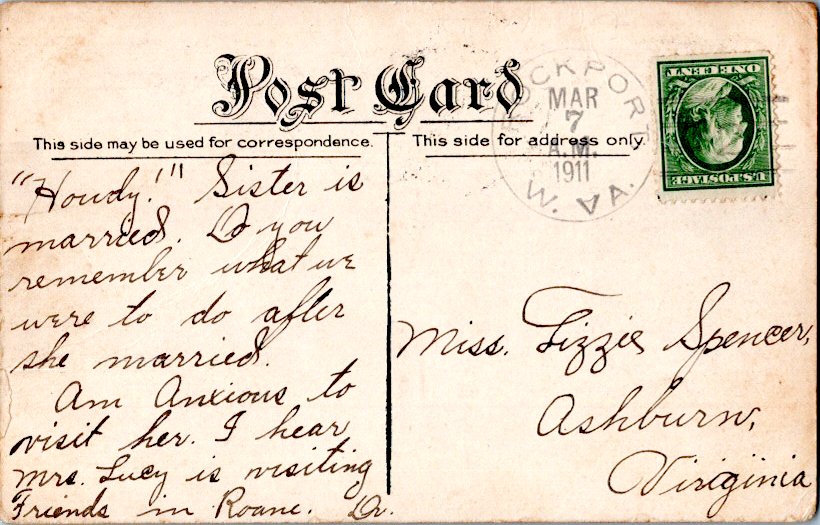 Post Card
This side may be used for correspondence.
This side for address only.
ROCKPORT
MAR
7
A.M.
1911
W. VA.
ONE CENT
U.S. POSTAGE
"Howdy!" Sister is
married. Do you
remember what we
were to do after
she married.
Am Anxious to
visit her. I hear
Mrs. Lucy is visiting
Friends in Roane.
Miss. Lizzie Spencer,
Ashburn,
Virginia